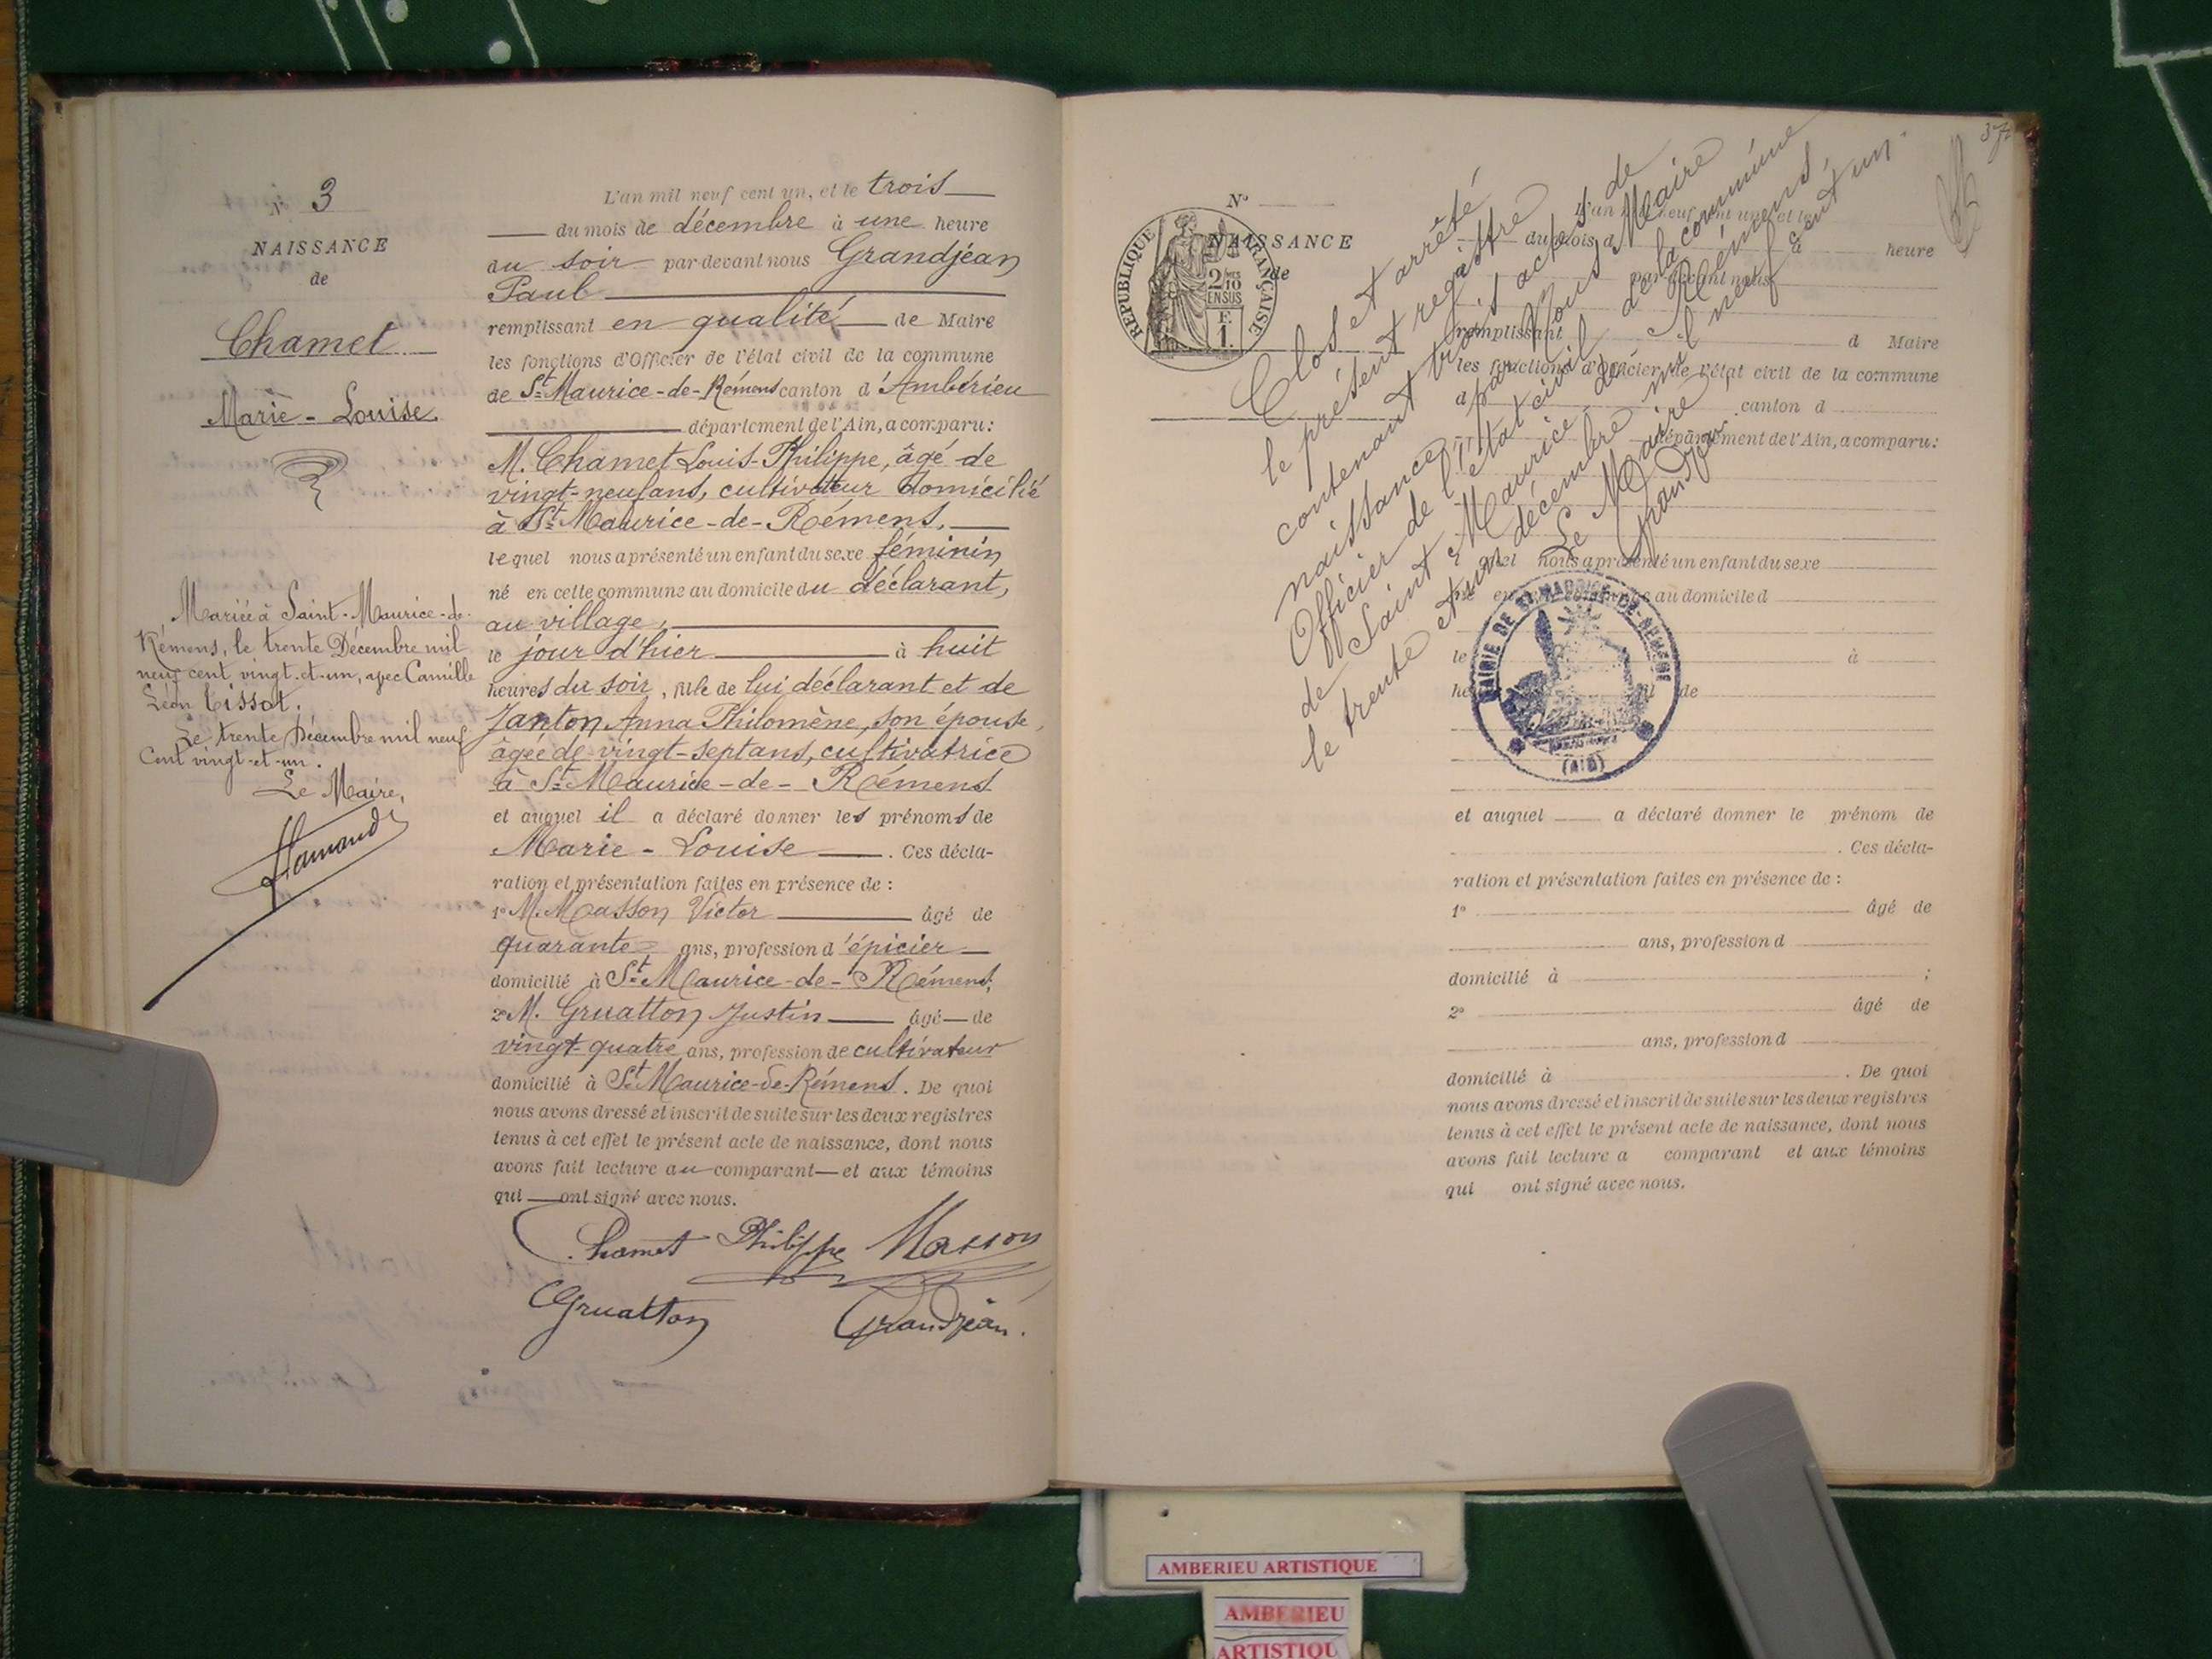 N° 3
NAISSANCE
de
Chamet
Marie - Louise
Mariée à Saint-Maurice-de-
Rémens, le trente Décembre mil
neuf cent vingt-et-un, avec Camille
Léon Tissot.
Le trente Décembre mil neuf
Cent vingt-et-un.
Le Maire,
L'an mil neuf cent un, et le trois
du mois de décembre à une heure
du soir par devant nous Grandjean
Paul
remplissant en qualité de Maire
les fonctions d'Officier de l'état civil de la commune
de St Maurice-de-Rémens canton d'Ambérieu
département de l'Ain, a comparu:
M. Chamet Louis-Philippe, âgé de
vingt-neuf ans, cultivateur domicilié
à St Maurice-de-Rémens.
lequel nous a présenté un enfant du sexe féminin
né en cette commune au domicile du déclarant,
au village,
le jour d'hier à huit
heures du soir, fille de lui déclarant et de
Janton Anna Philomène, son épouse,
âgée de vingt-sept ans, cultivatrice
à St Maurice-de-Rémens
et auquel il a déclaré donner les prénoms de
Marie-Louise. Ces décla-
ration et présentation faites en présence de :
1° M. Masson Victor âgé de
quarante ans, profession d'épicier
domicilié à St Maurice-de-Rémens,
2° M. Gruatton Justin âgé de
vingt-quatre ans, profession de cultivateur
domicilié à St Maurice-de-Rémens. De quoi
nous avons dressé et inscrit de suite sur les deux registres
tenus à cet effet le présent acte de naissance, dont nous
avons fait lecture au comparant et aux témoins
qui ont signé avec nous.
Chamet Philippe Masson
Gruatton Grandjean.
37
N°
RÉPUBLIQUE FRANÇAISE
2/10
EN SUS
F.
1.
NAISSANCE
de
Clos et arrêté
le présent registre
contenant trois actes de
naissance, par Nous Maire
Officier de l'état civil de la commune
de Saint Maurice de Rémens,
le trente et un décembre mil neuf cent un.
Le Maire
Grandjean
L'an mil neuf cent un, et le
du mois d à heure
par devant nous
remplissant d Maire
les fonctions d'Officier de l'état civil de la commune
d canton d
département de l'Ain, a comparu:
lequel nous a présenté un enfant du sexe
né en cette commune au domicile d
le à
heure fil de
MAIRIE DE ST MAURICE-DE-REMENS
(AIN)
et auquel a déclaré donner le prénom de
. Ces décla-
ration et présentation faites en présence de :
1° âgé de
ans, profession d
domicilié à ;
2° âgé de
ans, profession d
domicilié à . De quoi
nous avons dressé et inscrit de suite sur les deux registres
tenus à cet effet le présent acte de naissance, dont nous
avons fait lecture a comparant et aux témoins
qui ont signé avec nous.
AMBERIEU ARTISTIQUE
AMBERIEU
ARTISTIQU